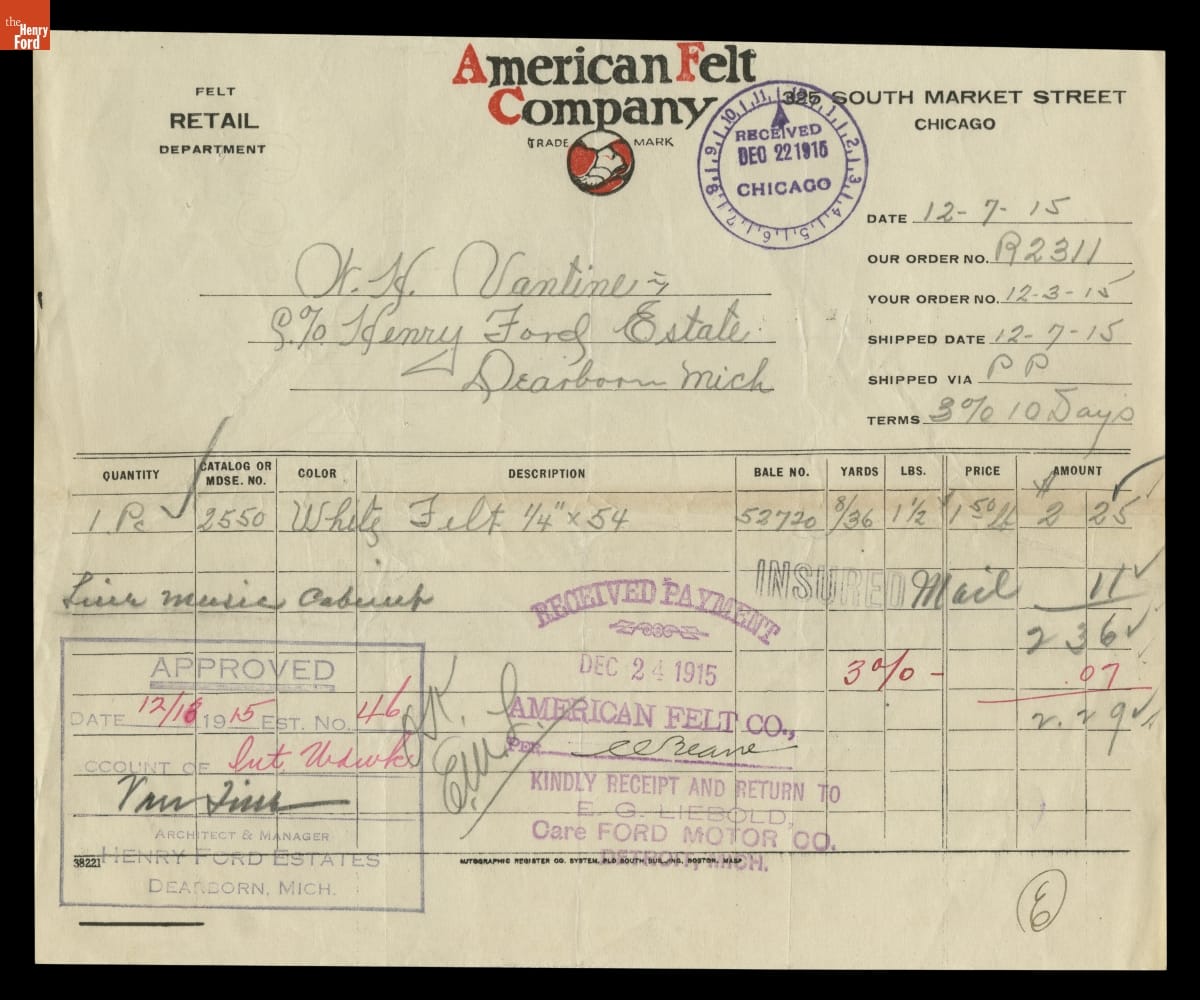 the Henry Ford
American Felt Company
TRADE MARK
FELT
RETAIL
DEPARTMENT
325 SOUTH MARKET STREET
CHICAGO
RECEIVED
DEC 22 1915
CHICAGO
DATE 12-7-15
OUR ORDER NO. R2311
YOUR ORDER NO. 12-3-15
SHIPPED DATE 12-7-15
SHIPPED VIA PP
TERMS 3% 10 Days
Vantine
Henry Ford Estate
Dearborn Mich
QUANTITY CATALOG OR MDSE. NO. COLOR DESCRIPTION BALE NO. YARDS LBS. PRICE AMOUNT
1 Pc 2550 White Felt 1/4" x 54 52720 8/36 1 1/2 1 50 $ 2 25
INSURED Mail 11
music Cabinet
2 36
3% - .07
2.29
RECEIVED PAYMENT
DEC 24 1915
AMERICAN FELT CO.,
PER
KINDLY RECEIPT AND RETURN TO
E. G. LIEBOLD,
Care FORD MOTOR CO.
DETROIT, MICH.
APPROVED
DATE 12/18 1915 EST. No. 46
CCOUNT OF
ARCHITECT & MANAGER
HENRY FORD ESTATES
DEARBORN, MICH.
O.K.
38221
AUTOGRAPHIC REGISTER CO. SYSTEM, OLD SOUTH BUILDING, BOSTON, MASS
E